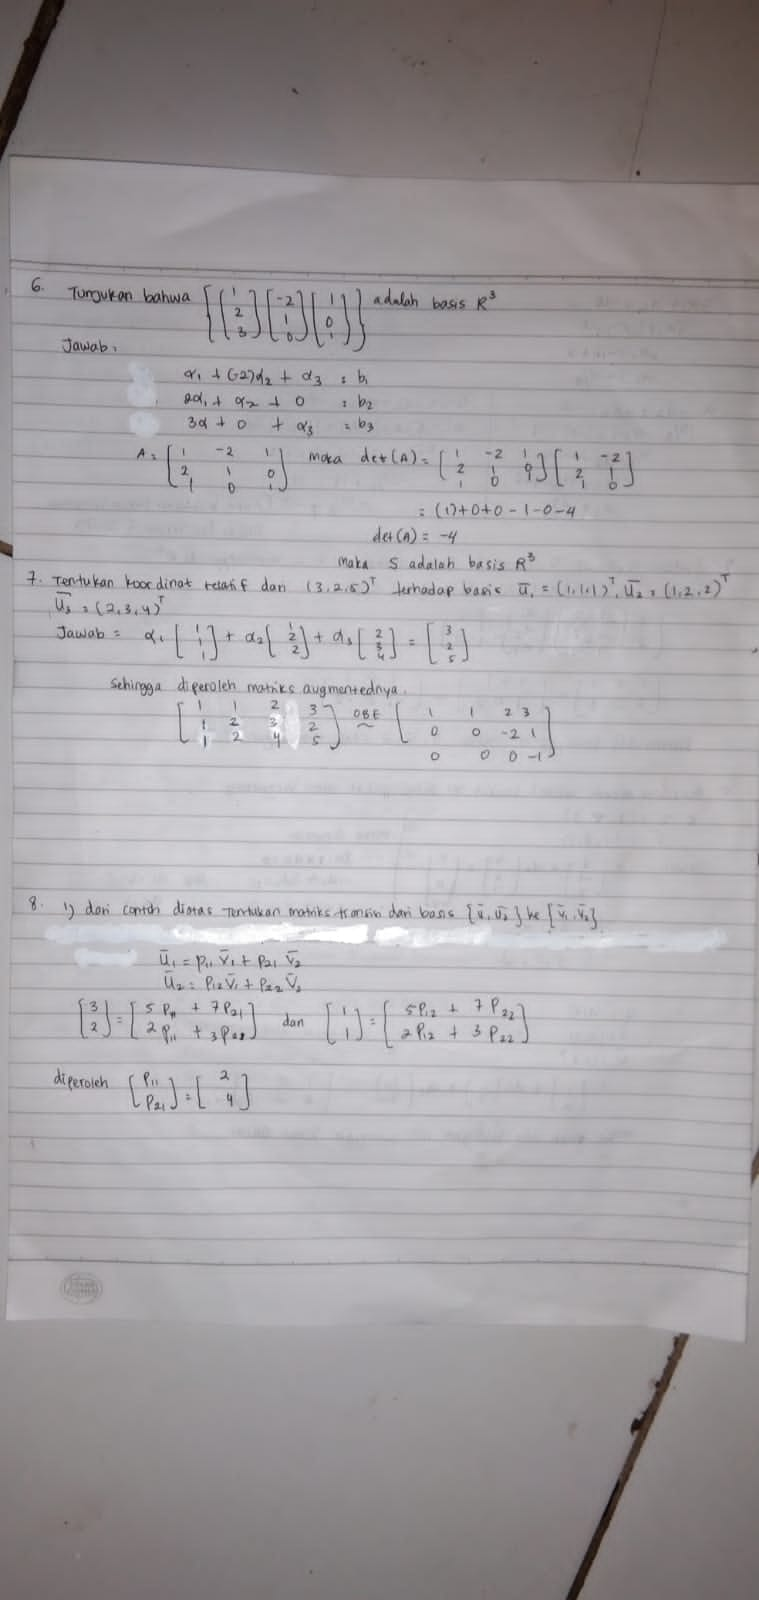 6. Tunjukan bahwa {[1 2 3] [-2 1 0] [1 0 1]} adalah basis R³
Jawab:
α₁ + (-2)α₂ + α₃ = b₁
2α₁ + α₂ + 0 = b₂
3α + 0 + α₃ = b₃
A = [1 -2 1; 2 1 0; 1 0 1] maka det(A) = [1 -2 1; 2 1 0; 1 0 1] [1 -2; 2 1; 1 0]
= (1)+0+0-1-0-4
det(A) = -4
maka S adalah basis R³
7. Tentukan koordinat relatif dari (3,2,5)ᵀ terhadap basis ū₁ = (1,1,1)ᵀ, ū₂ = (1,2,2)ᵀ
ū₃ = (2,3,4)ᵀ
Jawab = α₁ [1 1 1] + α₂ [1 2 2] + α₃ [2 3 4] = [3 2 5]
Sehingga diperoleh matriks augmentednya.
[1 1 2 3; 1 2 3 2; 1 2 4 5] OBE ~ [1 1 2 3; 0 0 -2 1; 0 0 0 -1]
8. 1) dari contoh diatas Tentukan matriks transisi dari basis {ū, ū₂} ke [v̄₁, v̄₂}
ū₁ = p₁₁ v̄₁ + p₂₁ v̄₂
ū₂ = p₁₂ v̄₁ + p₂₂ v̄₂
[3 2] = [5p₁₁ + 7p₂₁; 2p₁₁ + 3p₂₂] dan [1 1] = [5p₁₂ + 7p₂₂; 2p₁₂ + 3p₂₂]
diperoleh [p₁₁ p₂₁] = [2 4]